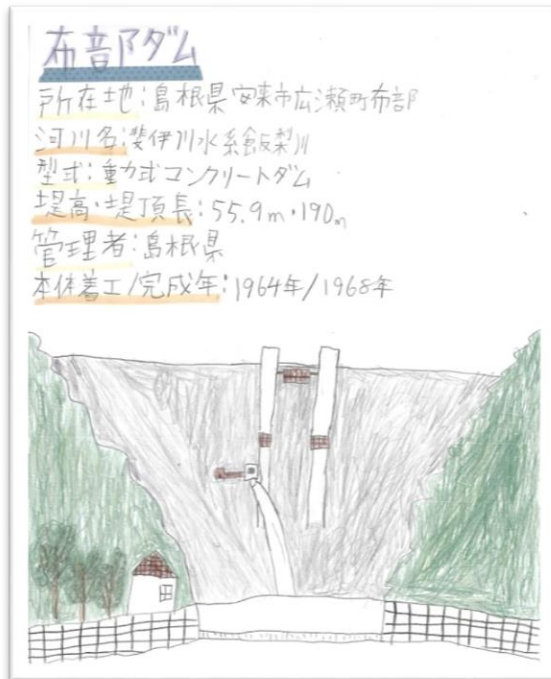 布部ダム
所在地:島根県安来市広瀬町布部
河川名:斐伊川水系飯梨川
型式:重力式コンクリートダム
堤高・堤頂長:55.9m・190m
管理者:島根県
本体着工/完成年:1964年/1968年